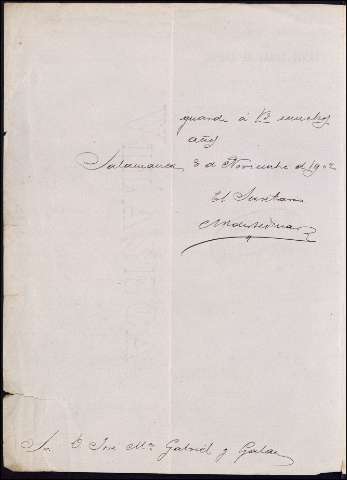 guarde á Vd. muchos
años
Salamanca 3 de Noviembre de 1902
El Secretario
Sr. D. José Mª Gabriel y Galán